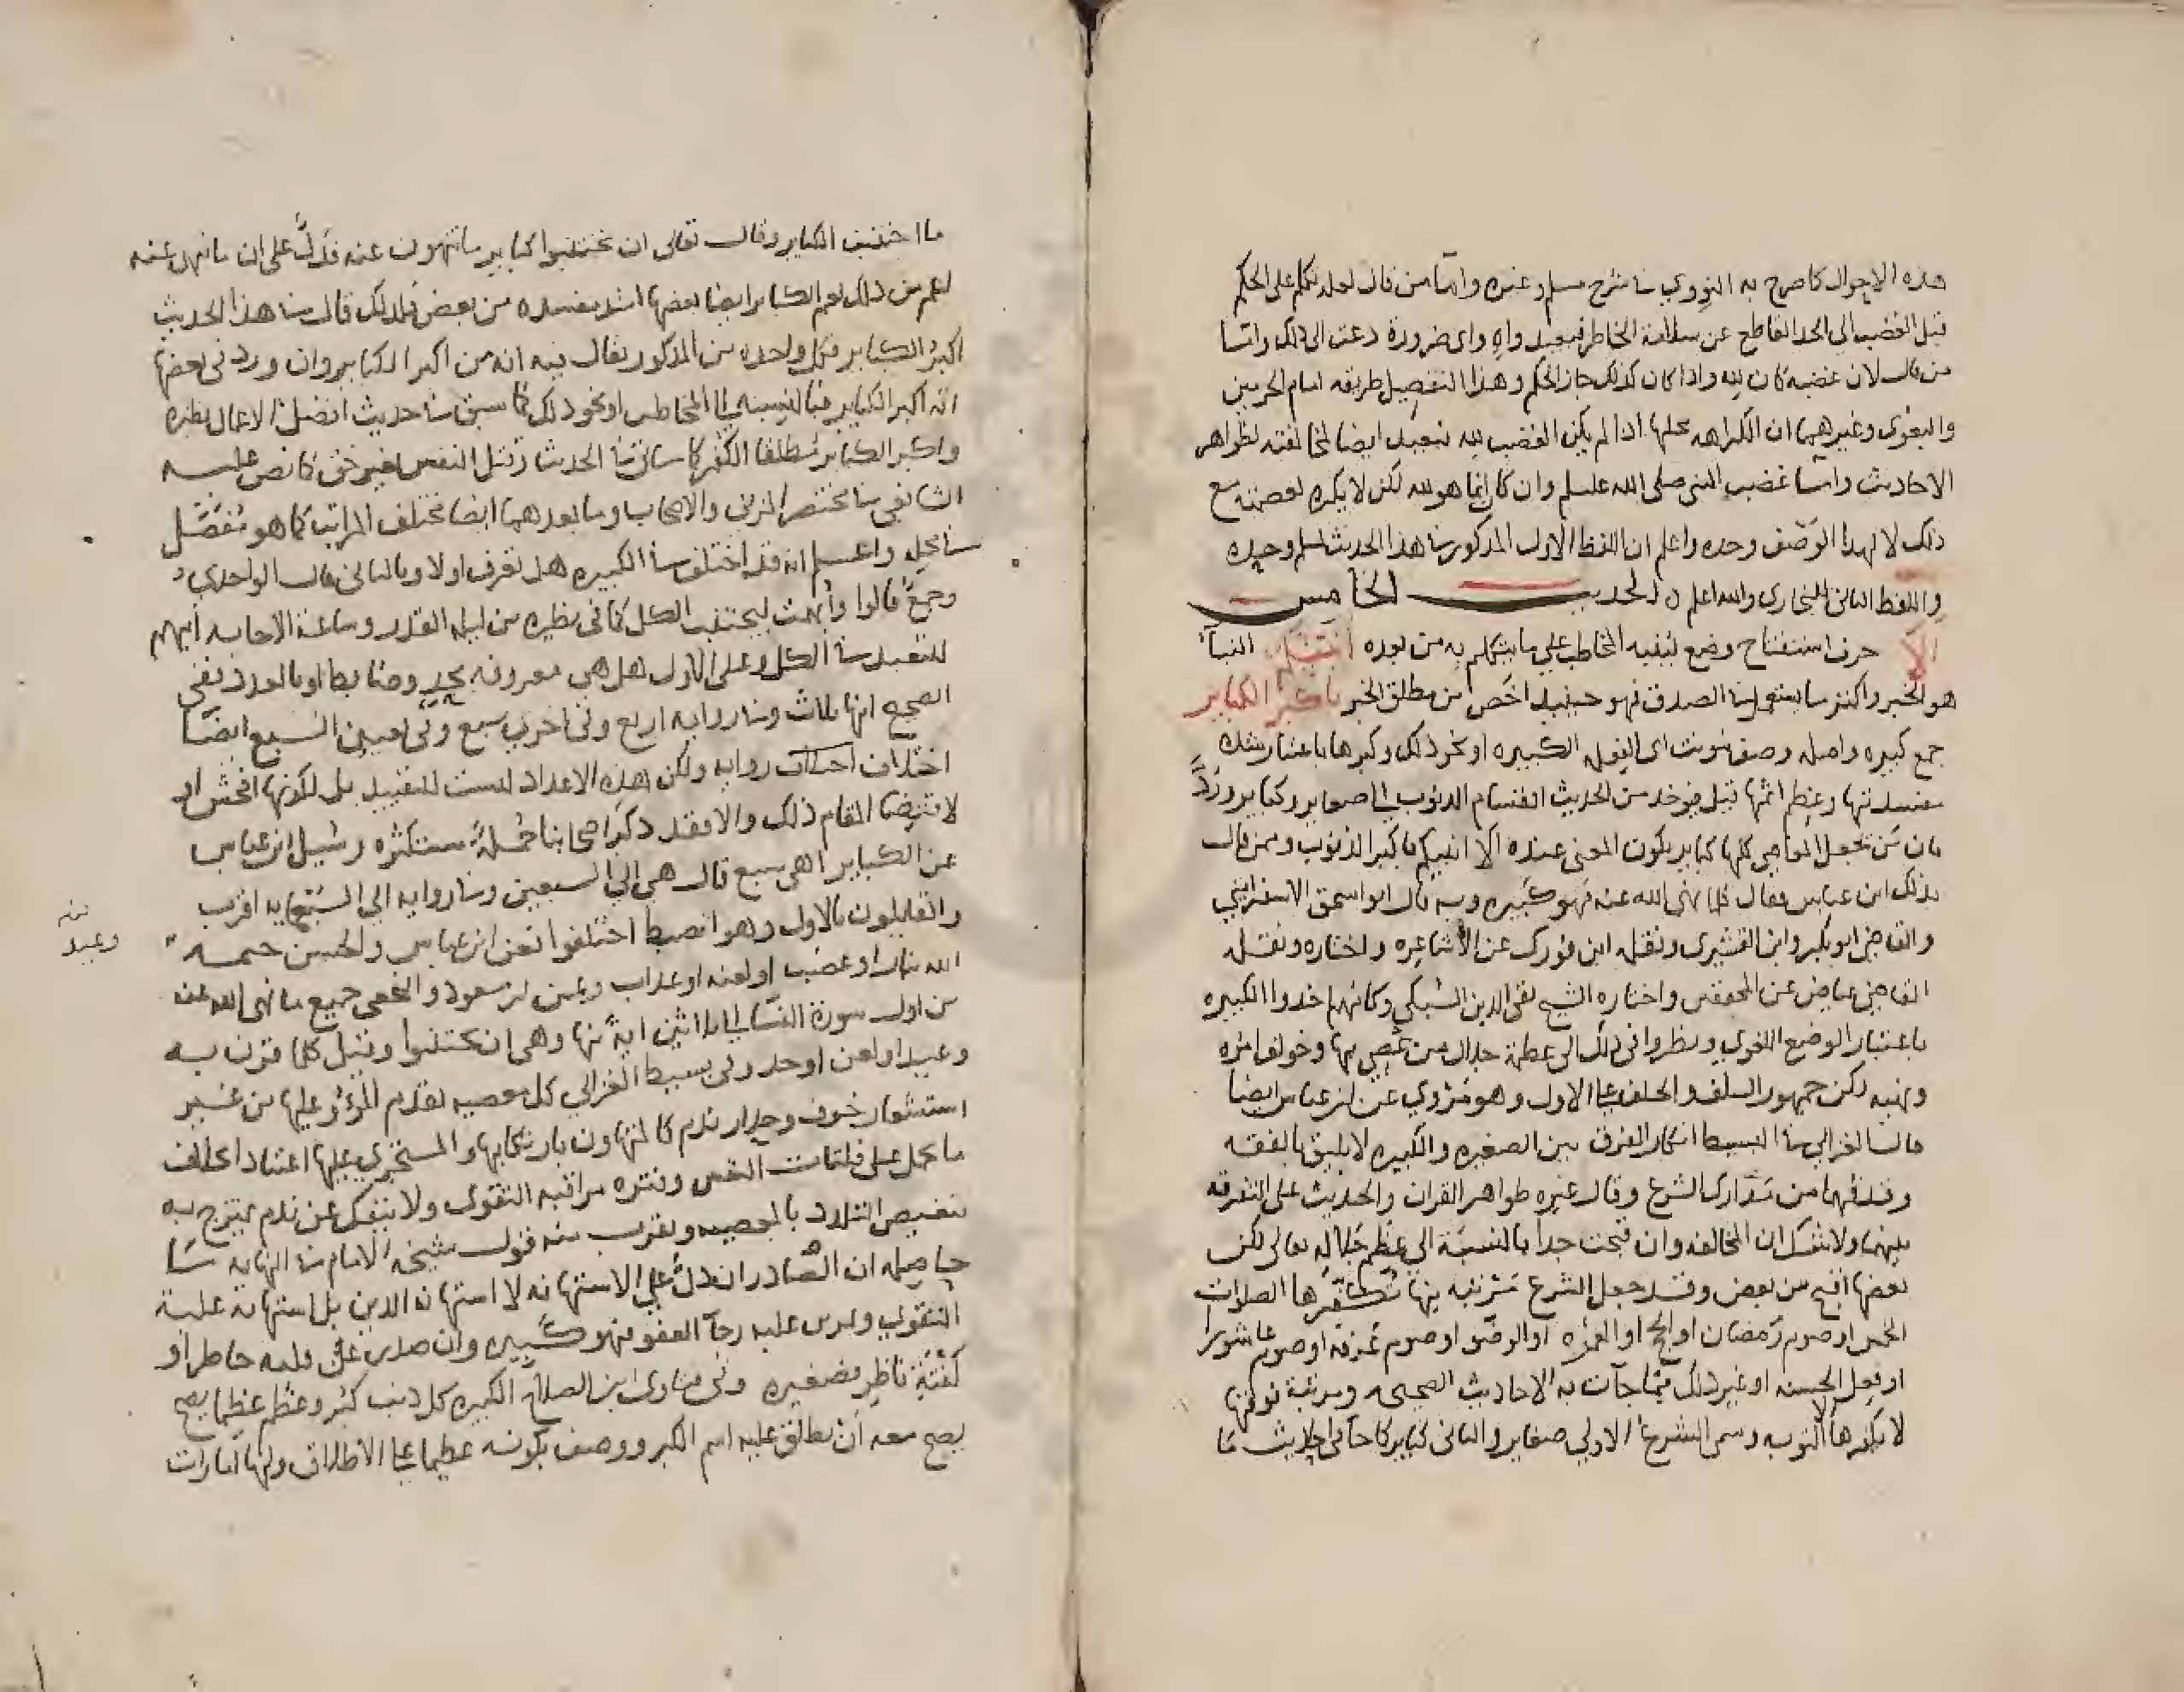 هذه الاحوال كما صرح به النووي في شرح مسلم وغيره واما من قال لعله تكلم على الحكم
قبل الغضب الى الحد القاطع عن سلامة الخاطر فبعيد واهٍ واي ضرورة دعت الى ذلك واما
من قال لان غضبه كان لله واذا كان كذلك جاز الحكم وهذا التفصيل طريقه امام الحرمين
والبغوى وغيرهما ان الكراهه محلها اذا لم يكن الغضب لله فبعيد ايضا لمخالفته لظواهر
الاحاديث واما غضب النبي صلى الله عليه وسلم وان كان انما هو لله لكن لا يكره لعصمته مع
ذلك لا لهذا الوصف وحده واعلم ان اللفظ الاول المذكور في هذا الحديث لمسلم وحده
واللفظ الثاني للبخاري والله اعلم الحديث الخامس
الا حرف استفتاح وضع لتنبيه المخاطب على ما يتكلم به من بعده انبئكم النبأ
هو الخبر واكثر ما يستعمل في الصدق فهو حينيذ اخص من مطلق الخبر باكبر الكباير
جمع كبيره واصله وصف مونث اى الفعله الكبيره او نحو ذلك وكبرها باعتبار شده
مفسدتها وعظم اثمها قيل فيوخذ من الحديث انقسام الذنوب الى صغاير وكباير وردَّ
بان من يجعل المعاصي كلها كباير يكون المعنى عنده الا انبيكم باكبر الذنوب وممن قال
بذلك ابن عباس فقال كلما نهى الله عنه فهو كبيره وبه قال ابو اسحق الاسفرايني
والقاضي ابو بكر وابن القشيرى ونقله ابن فورك عن الاشاعره واختاره ونقله
القاضي عياض عن المحققين واختاره الشيخ تقي الدين السبكي وكانهم اخذوا الكبيره
باعتبار الوضع اللغوي ونظروا في ذلك الى عظمة جلال من عصي بها وخولف امره
ونهيه لكن جمهور السلف والخلف على الاول وهو مروي عن ابن عباس ايضا
قال الغزالي في البسيط انكار الفرق بين الصغيره والكبيره لا يليق بالفقه
وقد فهما من مدارك الشرع وقال غيره ظواهر القران والحديث على التفرقه
بينهما ولا شك ان المخالفه وان قبحت جدا بالنسبة الى عظم جلاله تعالى لكن
بعضها اقبح من بعض وقد جعل الشرع مرتبه منها تكفرها الصلوات
الخمس او صوم رمضان او الحج او العمره او الوضو او صوم عرفه او صوم عاشورا
او فعل الحسنه او غير ذلك مما جآت به الاحاديث الصحيحه ومرتبة فوقها
لا يكفرها الا التوبه وسمى الشرع الاولى صغاير والثاني كباير كما جآ في احاديث ما
ما اجتنبت الكباير وقال تعالى ان تجتنبوا كباير ما تنهون عنه فدلَّ على ان ما نهى عنه
اعم من ذلك نعم الكباير ايضا بعضها اشد مفسده من بعض فلذلك قال في هذا الحديث
اكبر الكباير فكل واحده من المذكور يقال فيه انه من اكبر الكباير وان ورد في بعضها
انه اكبر الكباير فبالنسبة الى المخاطب او نحو ذلك كما سبق في حديث افضل الاعمال نظيره
واكبر الكباير مطلقا الكفر كما سياتي في الحديث وقتل النفس بغير حق كما نص عليه
الشافعي في مختصر المزني والاصحاب وما بعدهما ايضا مختلف المراتب كما هو مفصَّل
في محله واعلم انه قد اختلف في الكبيره هل تعرف اولا وبالثاني قال الواحدي
وجمعٌ قالوا وأبهمت ليجتنب الكل كما في نظيره من ليله القدر وساعة الاجابه ابهم
للتعبد في الكل وعلى الاول هل هي معروفه بحدٍ وضابط او بالعدد ففي
الصحيح انها ثلاث وفي روايه اربع وفي اخرى سبع وفي تعيين السبع ايضا
اختلاف روايه ولكن هذه الاعداد ليست للتقييد بل لكونها افحش او
لاقتضا المقام ذلك والا فقد ذكر اصحابنا جملةً مستكثره وسئل ابن عباس
عن الكباير اهي سبع قال هي الى السبعين وفي روايه الى السبعمايه اقرب
والقايلون بالاول وهو انضبط اختلفوا فعن ابن عباس والحسن ختمه
الله بنار او غضب او لعنه او عذاب وعن ابن مسعود والنخعي جميع ما نهى الله عنه
من اول سورة النسا الى ثلاثين اية منها وهي ان تجتنبوا وقيل كلما قرن به
وعيد او لعن او حد وفي بسيط الغزالي كل معصيه يقدم المرؤ عليها من غير
استشعار خوف وحذار ندم كالمتهاون بارتكابها والمستجري عليها اعتيادا بخلاف
ما يحمل على فلتات النفس وفتره مراقبه التقوى ولا ينفك عن ندم يمتزج به
تنغيص التلذذ بالمعصيه ويقرب منه قول شيخه الامام في النهايه ما
حاصله ان الصادر ان دلَّ على الاستهانه لا استهانه الدين بل استهانة غلبة
التقوى وتمرن عليه رجآ العفو فهو كبيره وان صدر عن فلته خاطر او
لفتة ناظر فصغيره وفي فتاوى ابن الصلاح الكبيره كل ذنب كبر وعظم عظما يصح
يصح معه ان يطلق عليه اسم الكبر ووصف بكونه عظيما على الاطلاق ولها امارات
منه
وعيد